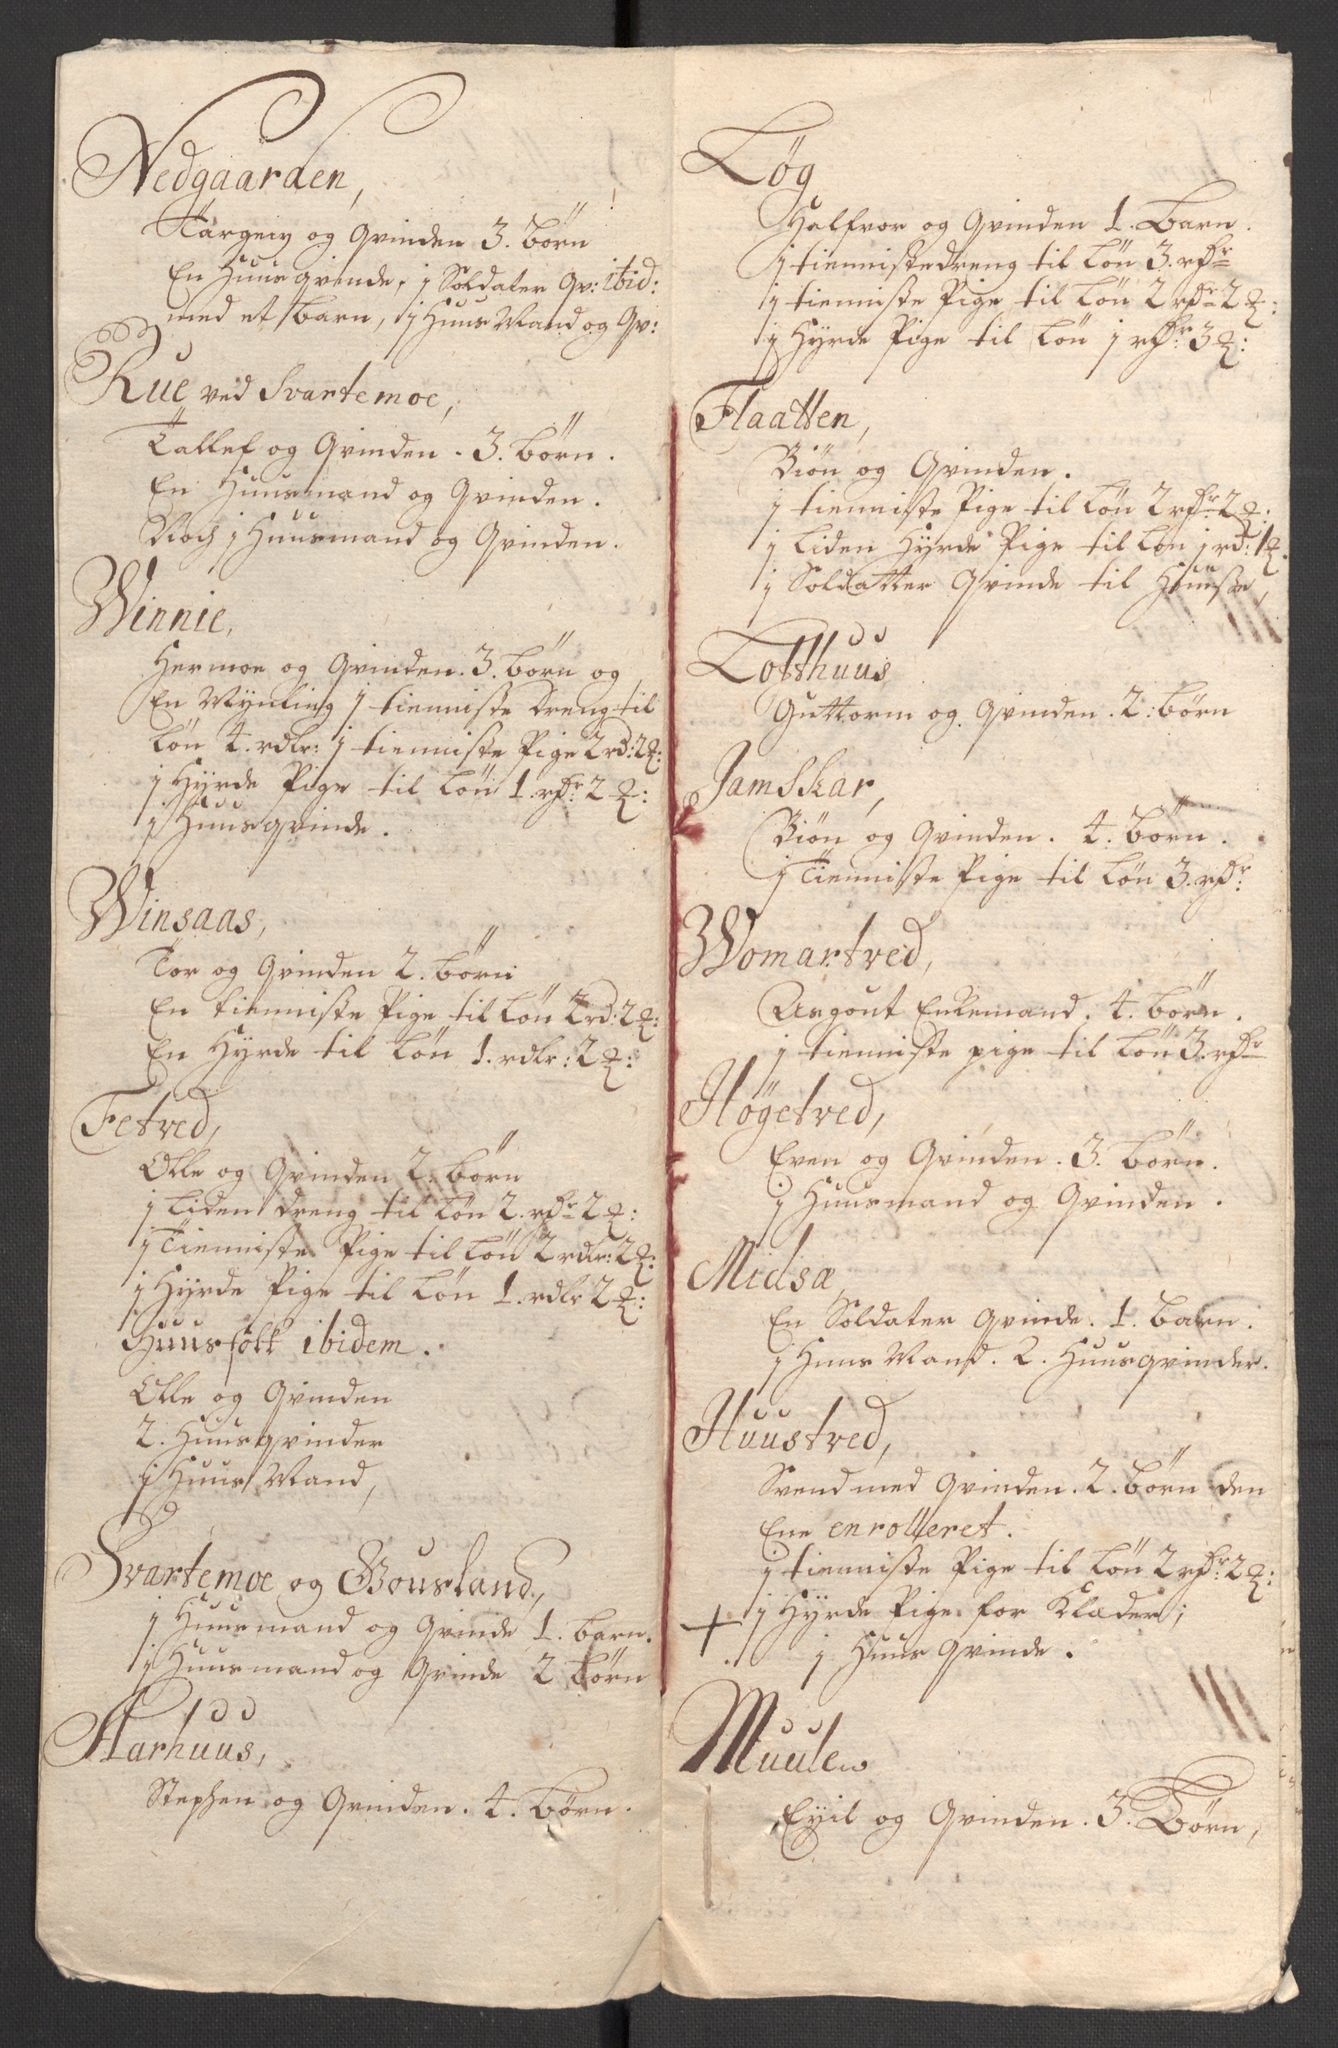 Nedgaarden,
Targeiv og Qvinden 3. börn
En Huusqvinde, j Soldater Qv: ibid:
med et barn, j Huus Mand og Qv:
Rue ved Svartemoe,
Tallef og Qvinden. 3. börn.
En Huusmand og Qvinden.
Noch j Huusmand og Qvinden.
Winnie,
Hermoe og Qvinden. 3. börn og
En Mynling j tienniste dreng til
Lön 4. rdlr: j tienniste Pige 2 rd: 2
j Hyrde Pige til Lön 1. rdr 2
j Huusqvinde.
Winsaas,
Tor og Qvinden 2. börn
En tienniste Pige til Lön 2 rd: 2
En Hyrde til Lön 1. rdlr: 2
Fetved,
Olle og Qvinden 2. börn
j Liden dreng til Lön 2. rdr 2
j Tienniste Pige til Lön 2 rdlr: 2
j Hyrde Pige til Lön 1. rdlr 2
Huusfolk ibidem.
Olle og Qvinden
2. Huusqvinder
j Huus Mand,
Svartemoe og Gousland,
j Huusmand og Qvinde 1. barn.
j Huusmand og Qvinde 2 börn
Aarhuus,
Stephen og Qvinden. 4. börn.
Løg
Halfvor og Qvinden 1. barn.
j tiennistedreng til Lön 3. rdr
j tienniste Pige til Lön 2 rdr 2
j Hyrde Pige til Lön j rdr: 3
Flaatten,
Biön og Qvinden.
j tienniste Pige til Lön 2 rdr 2
j Liden Hyrde Pige til Lön j rd: 1
j Soldatter Qvinde til Huuse,
Lofthuus
Guttorm og Qvinden. 2. börn
JamsKar,
Biön og Qvinden. 4. börn.
j Tienniste Pige til Lön 3. rdr
Womartved,
Asgout Enkemand. 4. börn.
j tienniste pige til Lön 3. rdr
Høgetved,
Even og Qvinden. 3. börn.
j Huusmand og Qvinden.
Midsæ,
En Soldater Qvinde. 1. barn.
j Huus Mand. 2. Huusqvinder.
Huustved,
Svend med Qvinden. 2. börn den
Ene enrolleret.
j tienniste Pige til Lön 2 rdr 2
j Hyrde Pige for Klæder;
j Huus Qvinde.
Muulen
Eyil og Qvinden. 3. Börn,